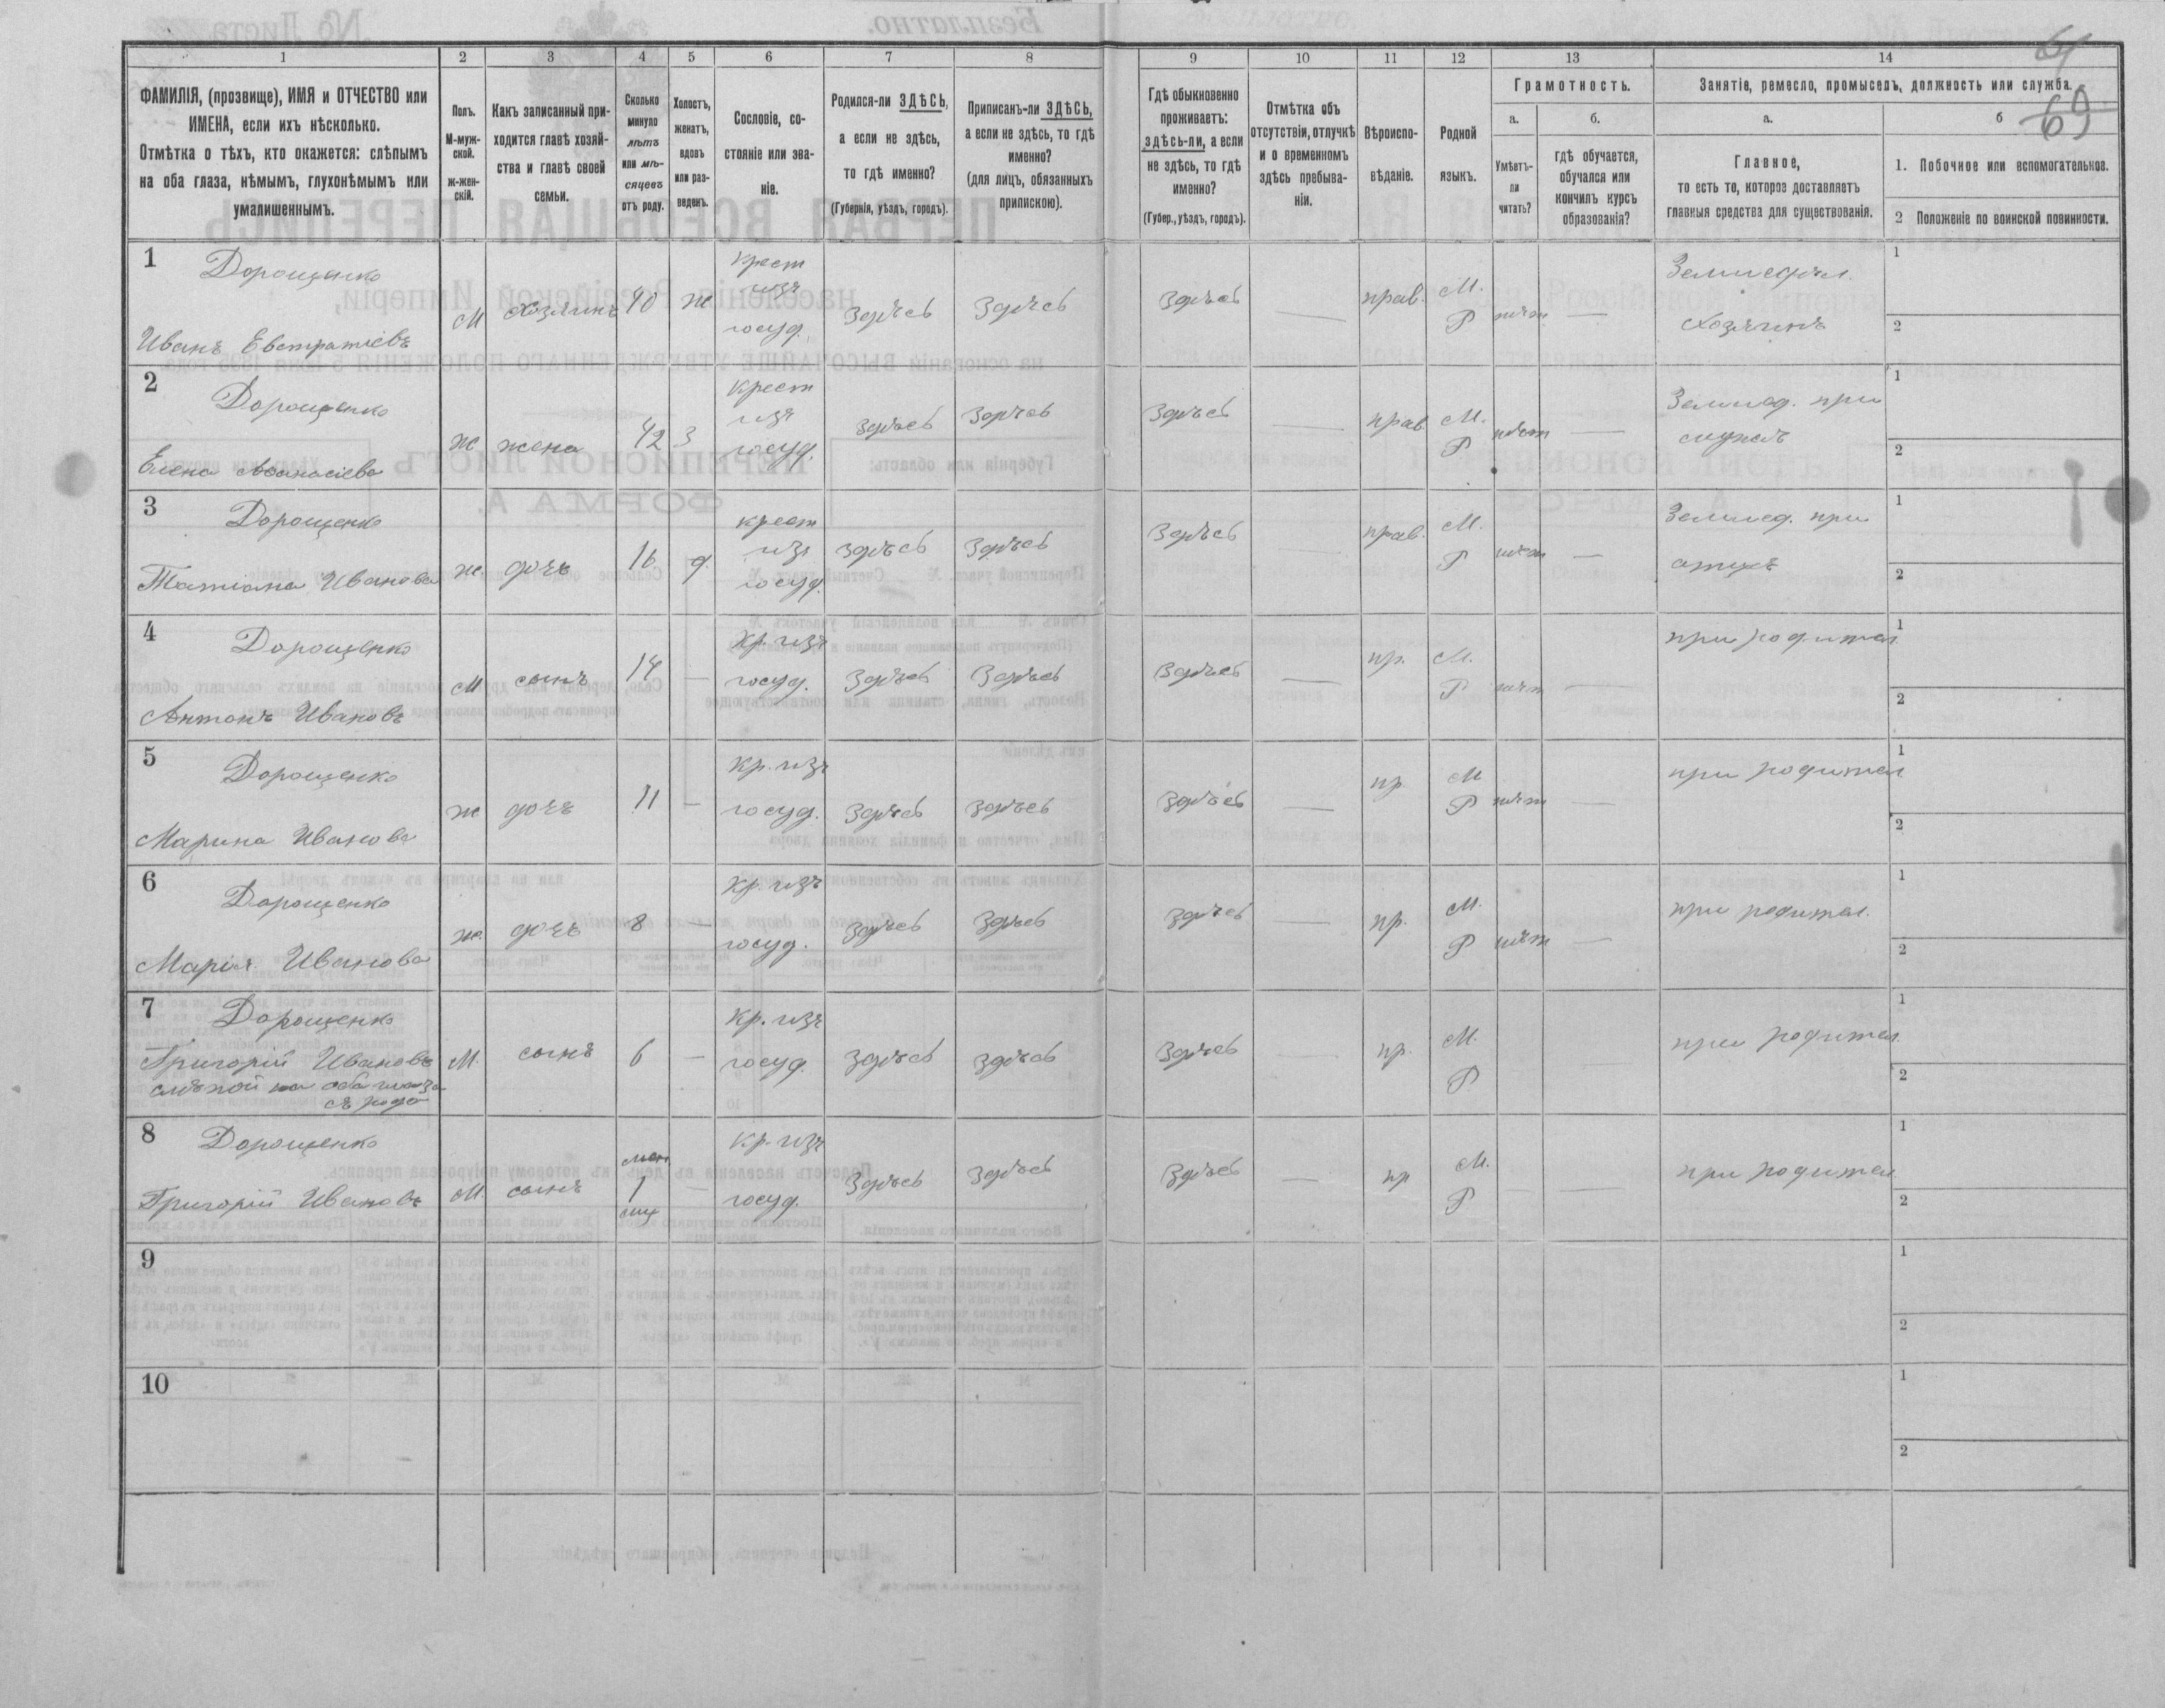 61
69
1 2 3 4 5 6 7 8 9 10 11 12 13 14
ФАМИЛІЯ, (прозвище), ИМЯ и ОТЧЕСТВО или
ИМЕНА, если ихъ нѣсколько.
Отмѣтка о тѣхъ, кто окажется: слѣпымъ
на оба глаза, нѣмымъ, глухонѣмымъ или
умалишеннымъ.
Полъ.
М-муж-
ской.
ж-жен-
скій.
Какъ записанный при-
ходится главѣ хозяй-
ства и главѣ своей
семьи.
Сколько
минуло
лѣтъ
или мѣ-
сяцевъ
отъ роду.
Холостъ,
женатъ,
вдовъ
или раз-
веденъ.
Сословіе, со-
стояніе или зва-
ніе.
Родился-ли ЗДѢСЬ,
а если не здѣсь,
то гдѣ именно?
(Губернія, уѣздъ, городъ).
Приписанъ-ли ЗДѢСЬ,
а если не здѣсь, то гдѣ
именно?
(для лицъ, обязанныхъ
припискою).
Гдѣ обыкновенно
проживаетъ:
здѣсь-ли, а если
не здѣсь, то гдѣ
именно?
(Губер., уѣздъ, городъ).
Отмѣтка объ
отсутствіи, отлучкѣ
и о временномъ
здѣсь пребыва-
ніи.
Вѣроиспо-
вѣданіе.
Родной
языкъ.
Грамотность.
а.
Умѣетъ-
ли
читать?
б.
гдѣ обучается,
обучался или
кончилъ курсъ
образованія?
Занятіе, ремесло, промыселъ, должность или служба.
а.
Главное,
то есть то, которое доставляетъ
главныя средства для существованія.
б
1. Побочное или вспомогательное.
2 Положеніе по воинской повинности.
1 Дорощенко
Иванъ Евстратіевъ
М хозяинъ 40 ж
крест
изъ
госуд.
здѣсь здѣсь здѣсь — прав. М.
Р нѣт —
Земледѣл.
хозяинъ
1
2
2 Дорощенко
Елена Афанасіева
ж жена 42 з
крест
изъ
госуд.
здѣсь здѣсь здѣсь — прав М.
Р нѣт —
Землед. при
мужѣ
1
2
3 Дорощенко
Татіана Иванова
ж. дочь 16 д.
крест
изъ
госуд.
здѣсь здѣсь здѣсь — прав. М.
Р нѣт —
Землед. при
отцѣ
1
2
4 Дорощенко
Антонъ Ивановъ
М сынъ 14 —
Кр. изъ
госуд.
здѣсь здѣсь здѣсь — пр. М.
Р нѣт —
при родител.
1
2
5 Дорощенко
Марина Иванова
ж дочь 11 —
Кр. изъ
госуд.
здѣсь здѣсь здѣсь — пр. М
Р нѣт —
при родител
1
2
6 Дорощенко
Марія Иванова
ж. дочь 8 —
Кр. изъ
госуд.
здѣсь здѣсь здѣсь — пр. М.
Р нѣт —
при родител.
1
2
7 Дорощенко
Григорій Ивановъ
слѣпой на оба глаза
съ рода
М. сынъ 6 —
Кр. изъ
госуд.
здѣсь здѣсь здѣсь — пр. М.
Р
при родител.
1
2
8 Дорощенко
Григорій Ивановъ
М. сынъ
1
—
Кр. изъ
госуд.
здѣсь здѣсь здѣсь — пр М.
Р — —
при родител.
1
2
9
1
2
10
1
2